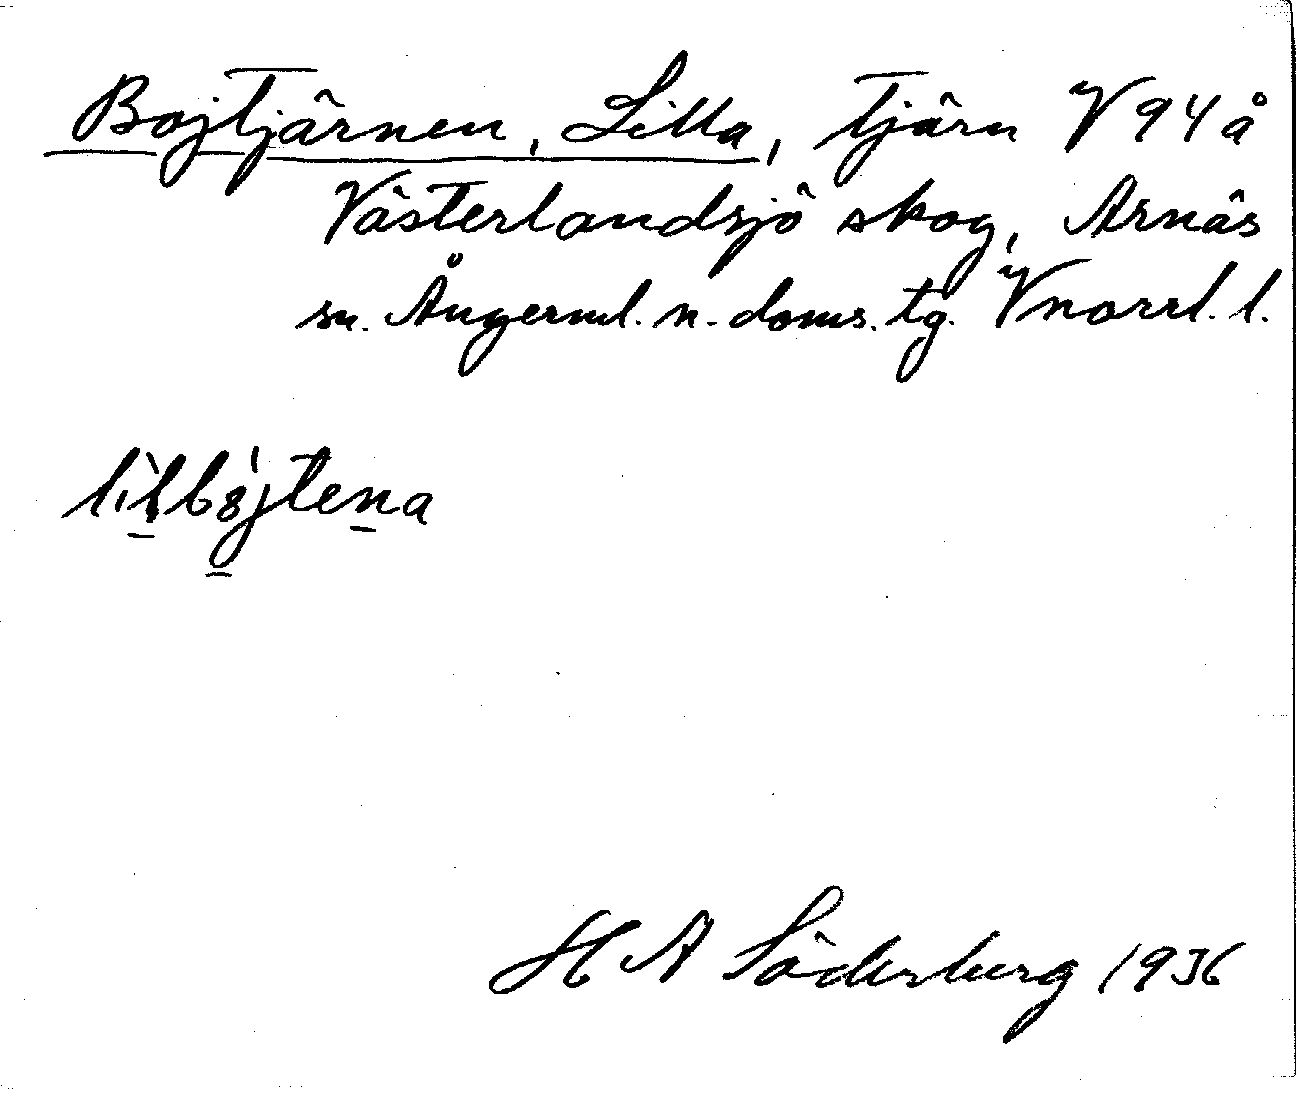 Bojtjärnen, Lilla, tjärn V 94 å
Västerlandsjö skog, Arnäs
sn. Ångerml. n. doms. tg. Vnorrl. l.
lìllbojtena
H A Söderberg 1936